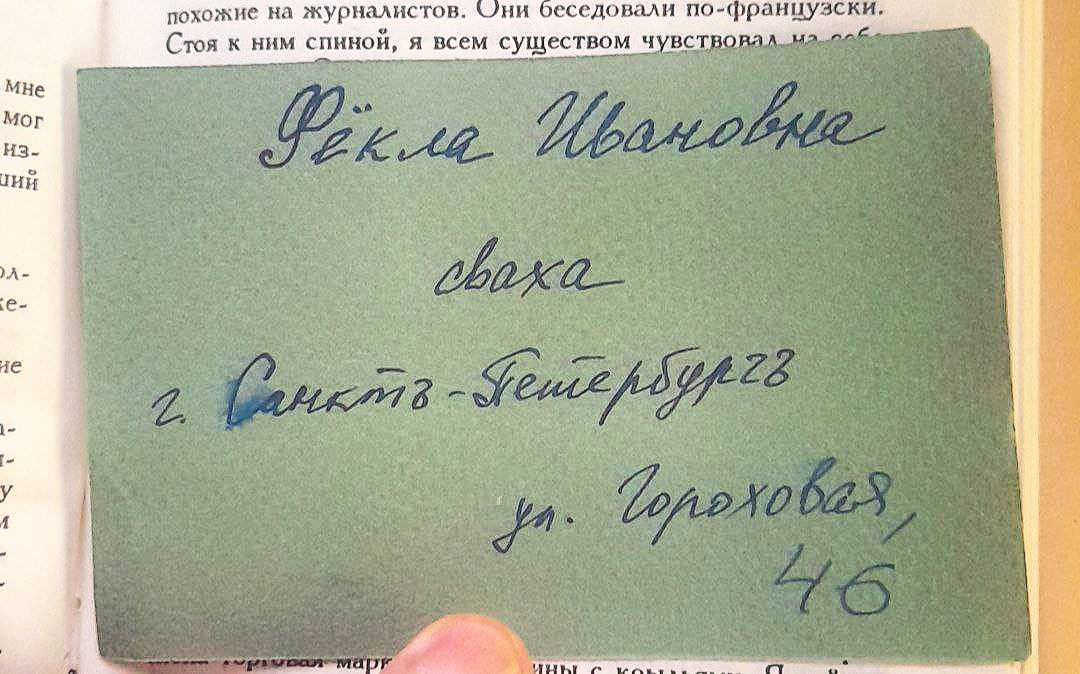 похожие на журналистов. Они беседовали по-французски.
Стоя к ним спиной, я всем существом чувствовал на себе
мне
мог
из-
ший
ол-
же-
ие
у
м
Фёкла Ивановна
сваха
г. Санктъ-Петербургъ
ул. Гороховая,
46
торговая
с